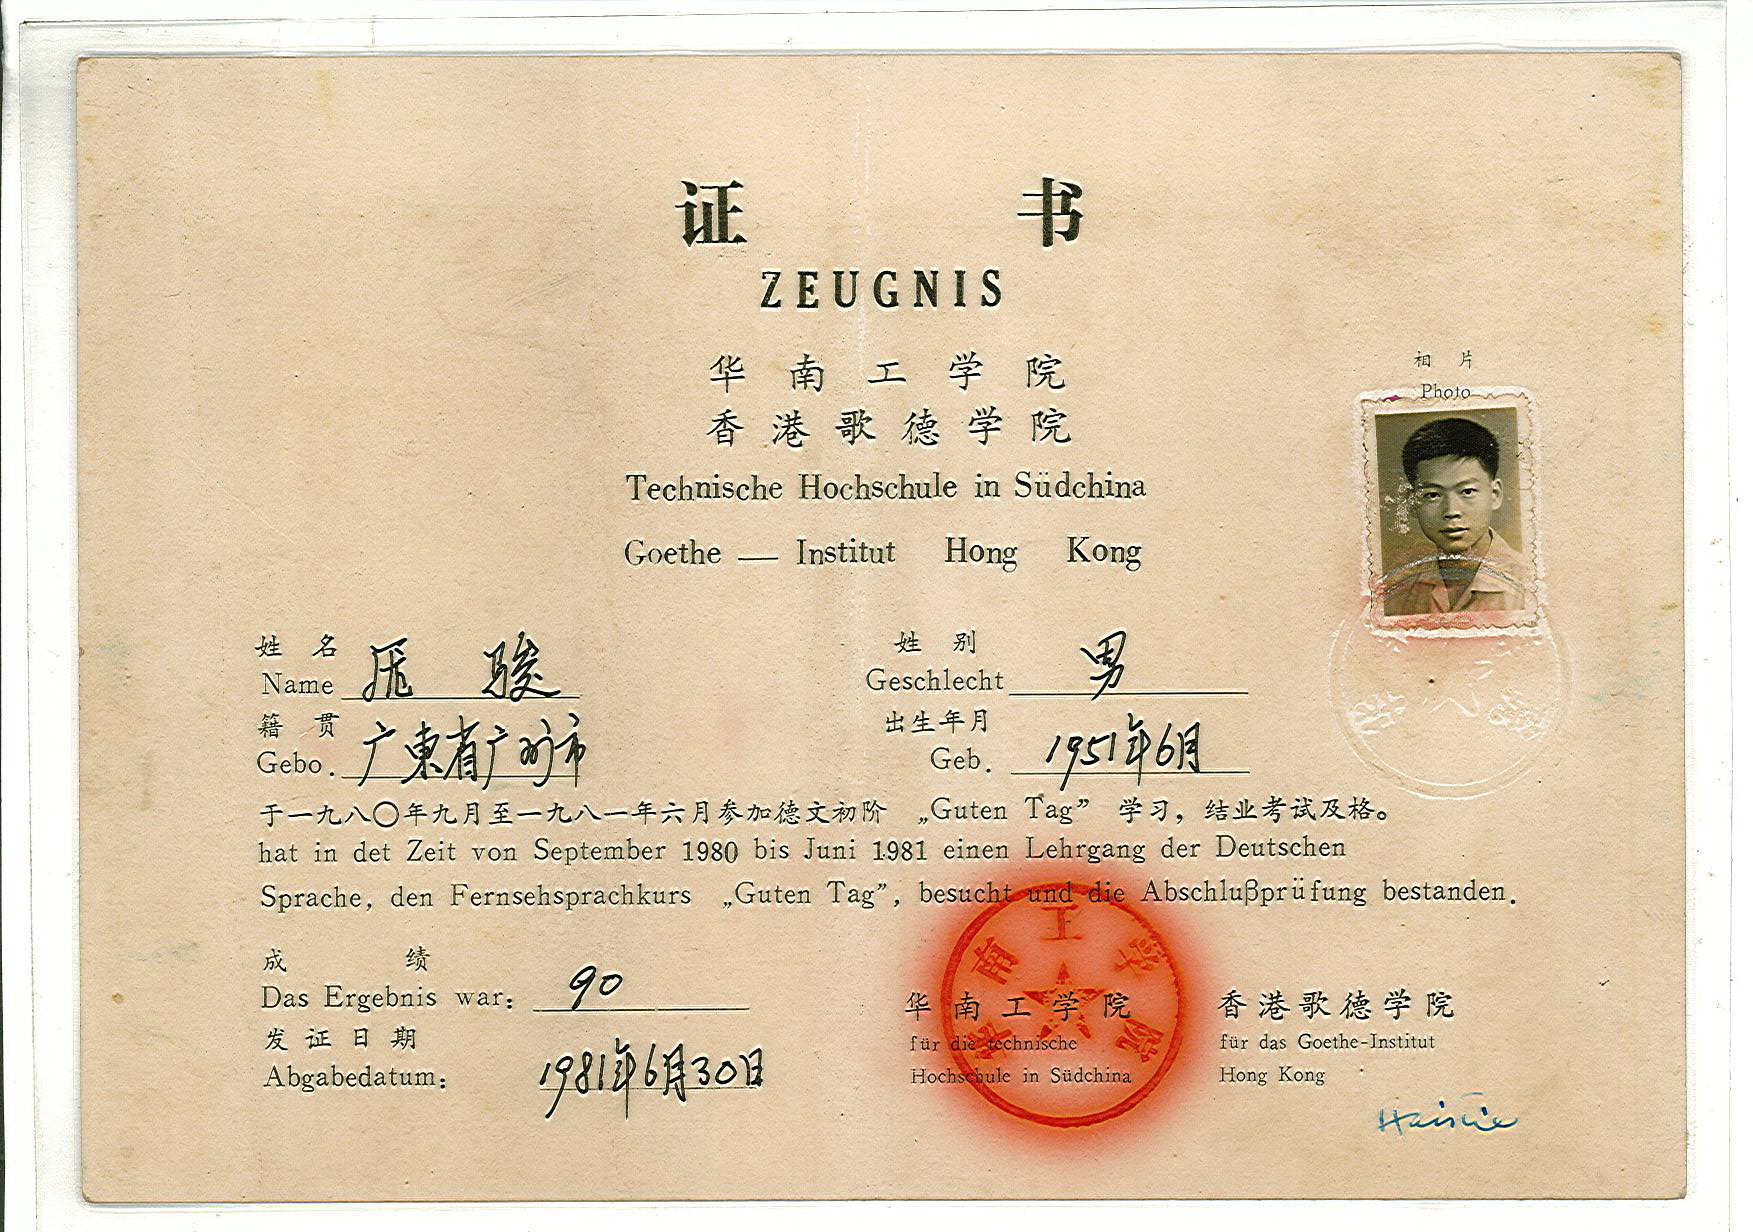 证 书
ZEUGNIS
华南工学院
香港歌德学院
Technische Hochschule in Südchina
Goethe — Institut Hong Kong
相片
Photo
姓名 骏
Name
姓别 男
Geschlecht
籍贯 广東省广州市
Gebo.
出生年月 1951年6月
Geb.
于一九八〇年九月至一九八一年六月参加德文初阶 „Guten Tag” 学习，结业考试及格。
hat in det Zeit von September 1980 bis Juni 1981 einen Lehrgang der Deutschen
Sprache, den Fernsehsprachkurs „Guten Tag”, besucht und die Abschlußprüfung bestanden.
成绩
Das Ergebnis war: 90
发证日期
Abgabedatum: 1981年6月30日
华南工学院
华南工学院
für die technische
Hochschule in Südchina
香港歌德学院
für das Goethe-Institut
Hong Kong